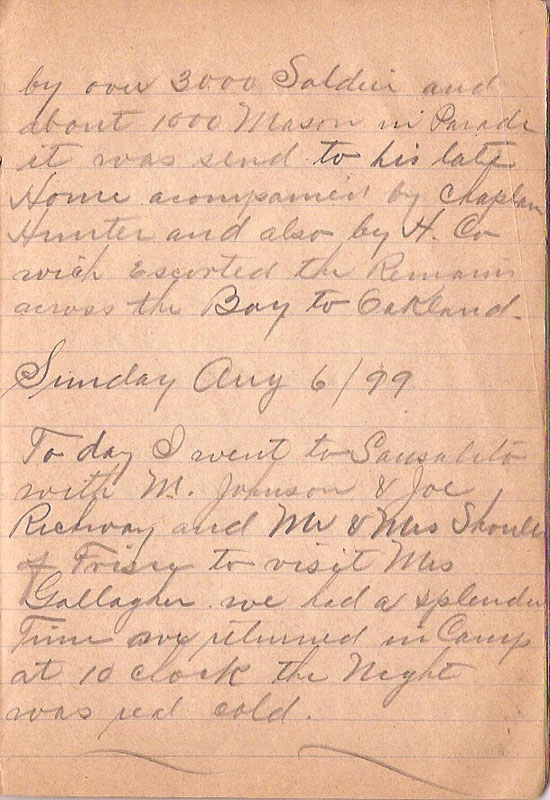 by over 3000 Soldier and
about 1000 Mason in Parade
it was send to his late
Home acompanied by Chaplan
Hunter and also by H. Co
wich Escorted the Remains
across the Bay to Oakland.
Sunday Aug 6/99
To day I went to Sausalito
with M. Johnson & Joe
Richway and Mr & Mrs
of to visit Mrs
Gallagher. we had a splendid
Time we returned in Camp
at 10 clock the Night
was real cold.